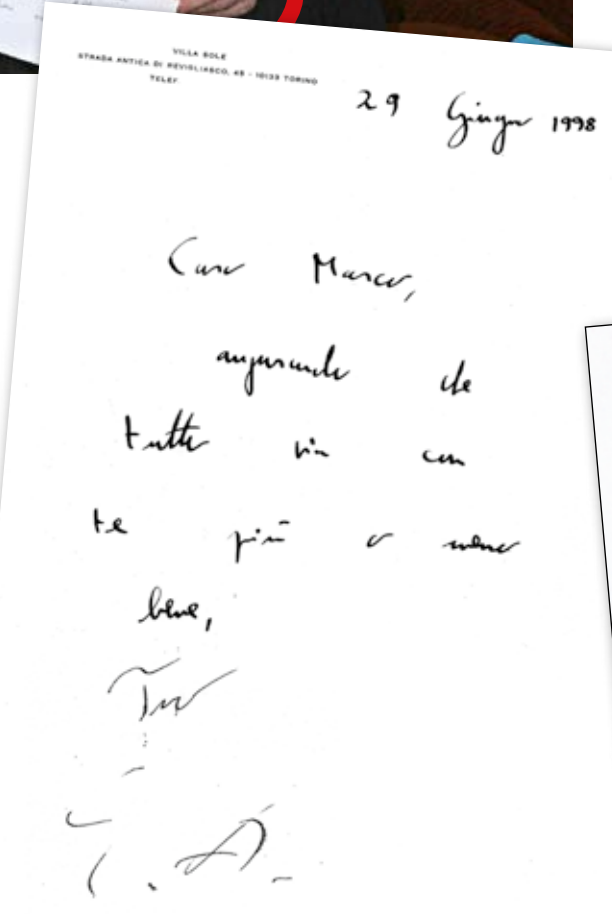 VILLA SOLE
STRADA ANTICA DI REVIGLIASCO, 45 - 10133 TORINO
TELEF
29 Giugno 1998
Caro Marco,
augurando che
tutto sia con
te più o meno
bene,
Tuo